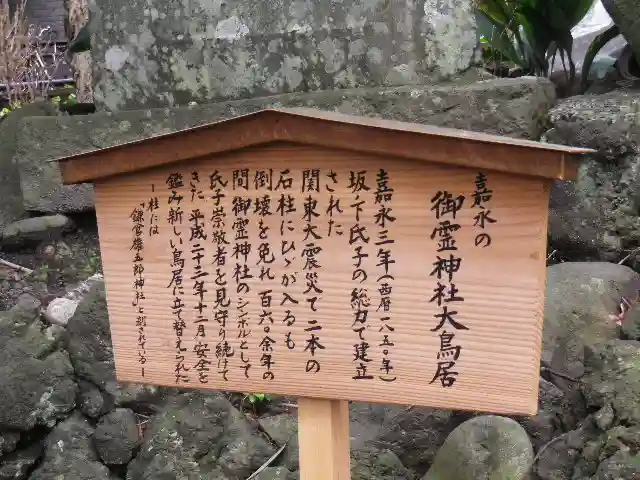 嘉永の
御霊神社大鳥居
嘉永三年(西暦一八五〇年)
坂ノ下氏子の総力で建立
された
関東大震災で二本の
石柱にひゞが入るも
倒壊を免れ 百六〇余年の
間 御霊神社のシンボルとして
氏子崇敬者を見守り続けて
きた 平成二十三年十二月 安全を
鑑み新しい鳥居に立て替えられた
ー柱には
"鎌倉権五郎神社"と彫されているー